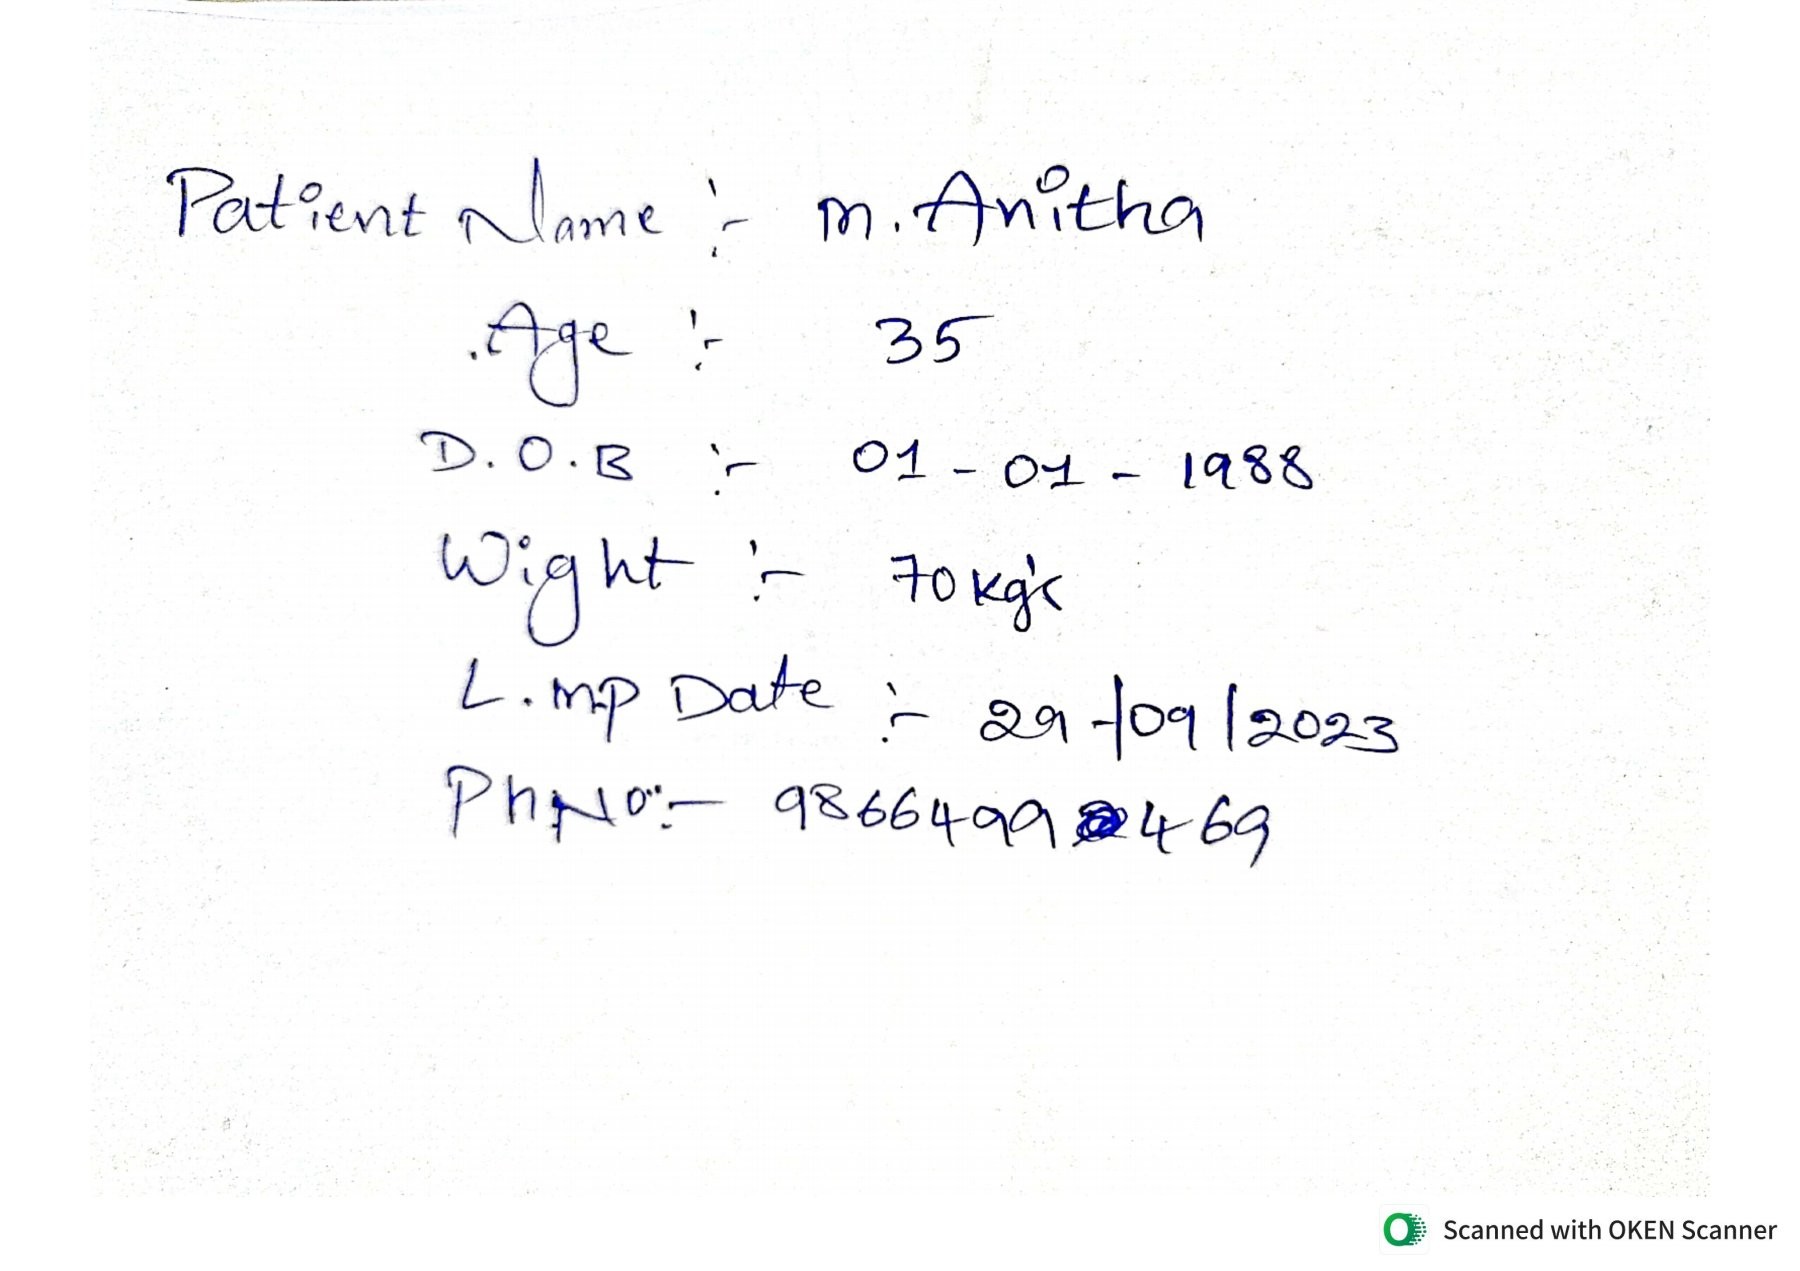 Patient Name :- M. Anitha
Age :- 35
D.O.B :- 01-01-1988
Wight :- 70 kg's
L.MP Date :- 29/09/2023
Ph No:- 9866499469
Scanned with OKEN Scanner